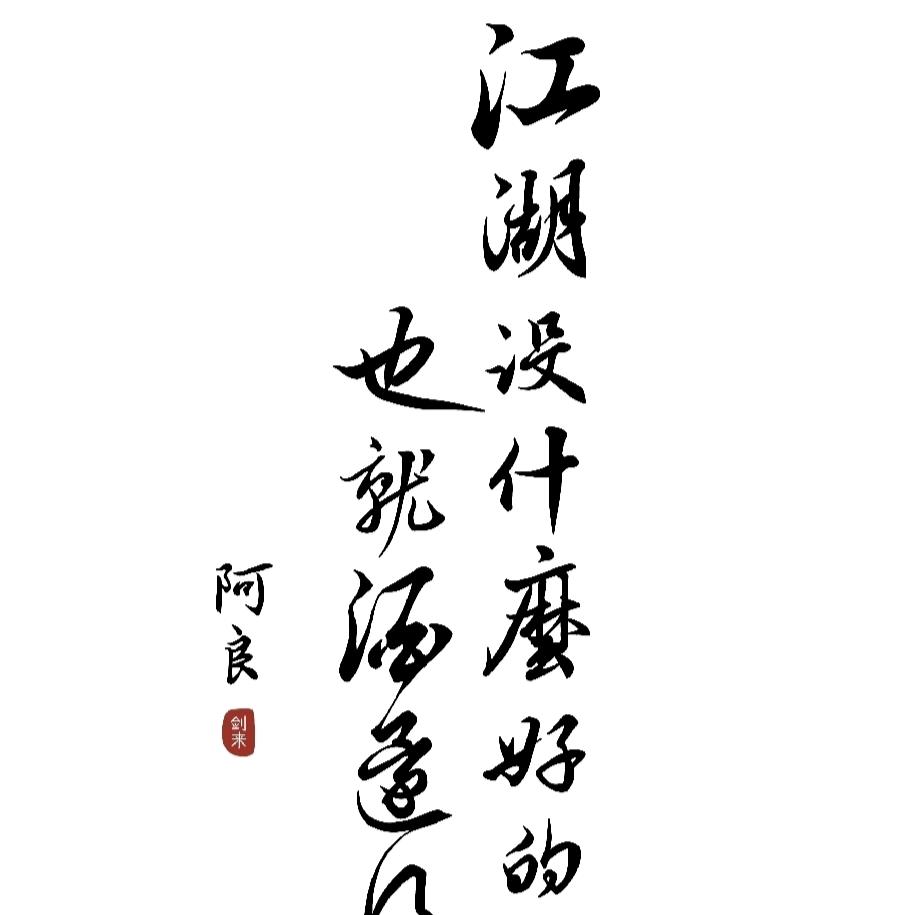 江湖没什麼好的
也就酒還
阿良
剑来